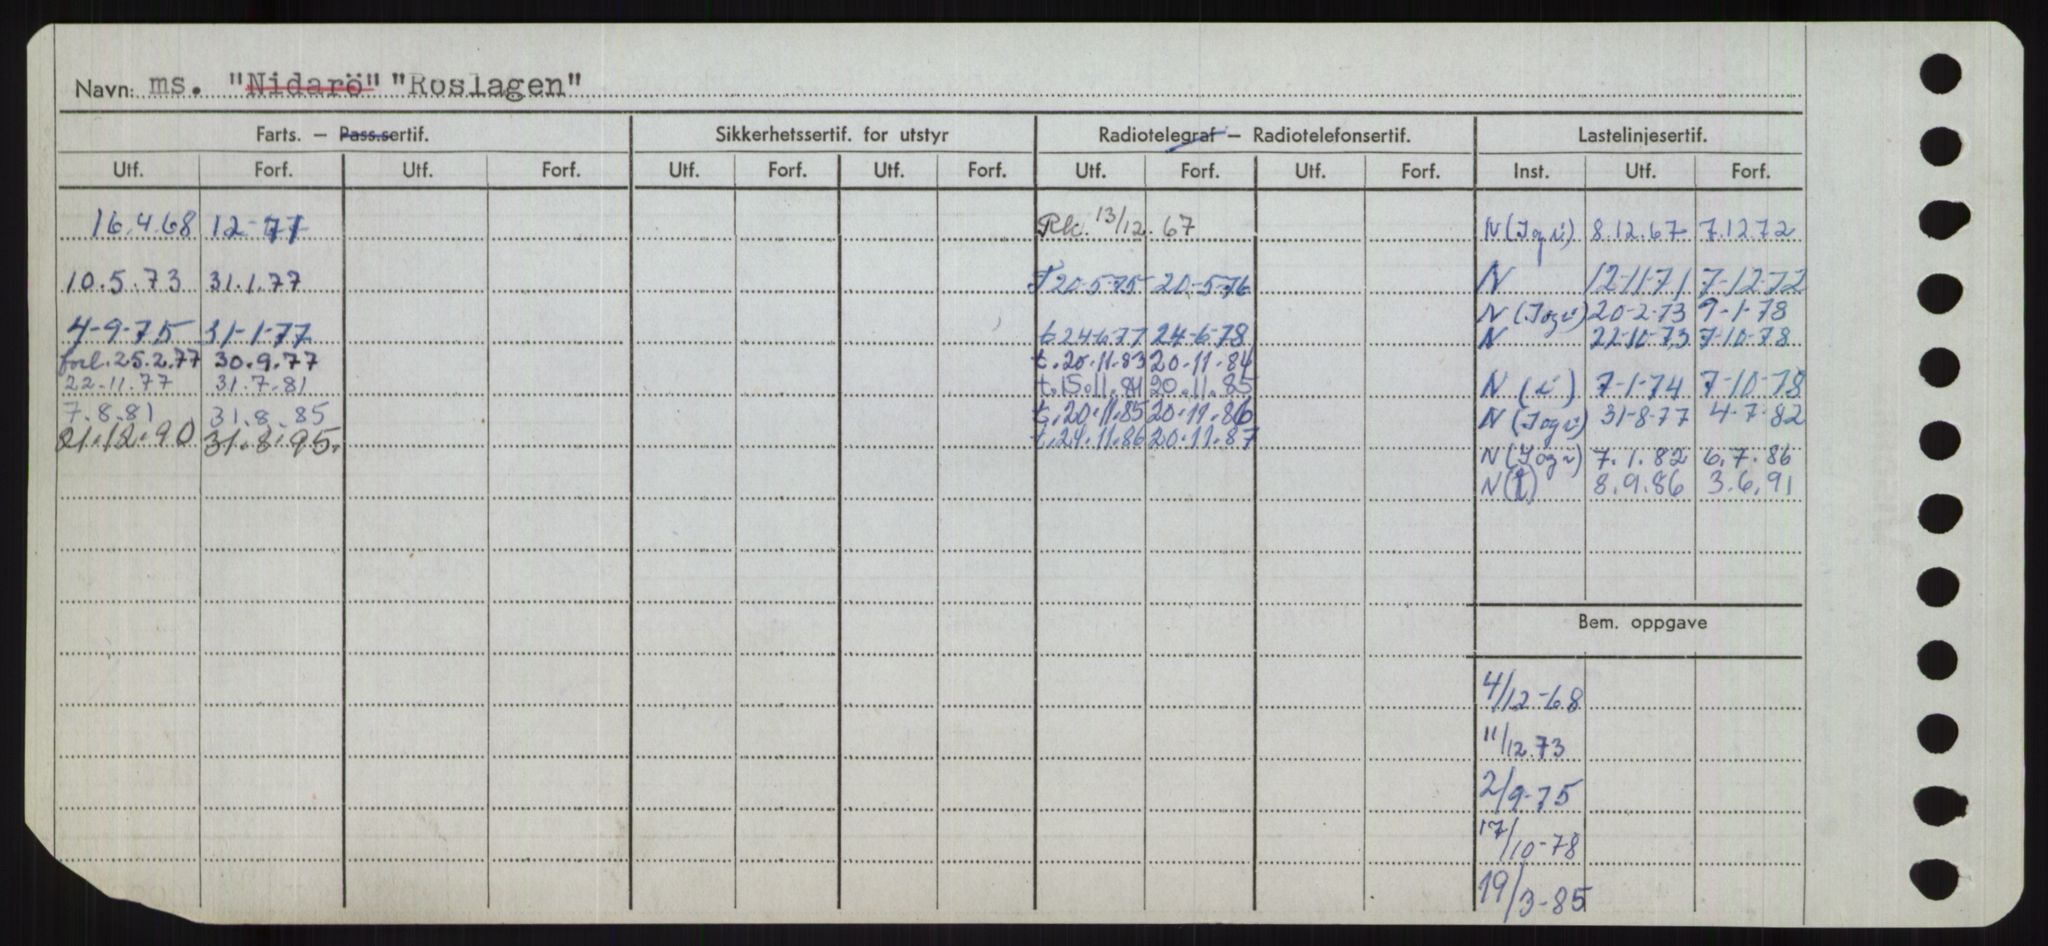 Navn: ms. "Nidarö" "Roslagen"
Farts. — Pass.sertif. Sikkerhetssertif. for utstyr Radiotelegraf — Radiotelefonsertif. Lastelinjesertif.
Utf. Forf. Utf. Forf. Utf. Forf. Utf. Forf. Utf. Forf. Utf. Forf. Inst. Utf. Forf.
16.4.68 12-77 Rk. 13/12. 67 N (I og i) 8.12.67 7.12 72
10.5.73 31.1.77 T 20-5-75 20-5-76 N 12-11-71 7-12-72
N (I og i) 20-2-73 9-1-78
4-9-75 31-1-77 t 24-6-77 24-6-78 N 22-10-73 7-10-78
forl. 25.2.77 30.9.77 t. 20.11.83 20.11.84
22.11.77 31.7.81 t. 15.11.84 20.11.85 N (i) 7-1-74 7-10-78
7.8.81 31.8.85 t. 20.11.85 20.11.86 N (I og i) 31-8-77 4-7-82
21.12.90 31.8.95. t. 24.11.86 20.11.87
N (I og i) 7.1.82 6.7.86
N (I) 8.9.86 3.6.91
Bem. oppgave
4/12-68
11/12.73
2/9-75
17/10-78
19/3-85